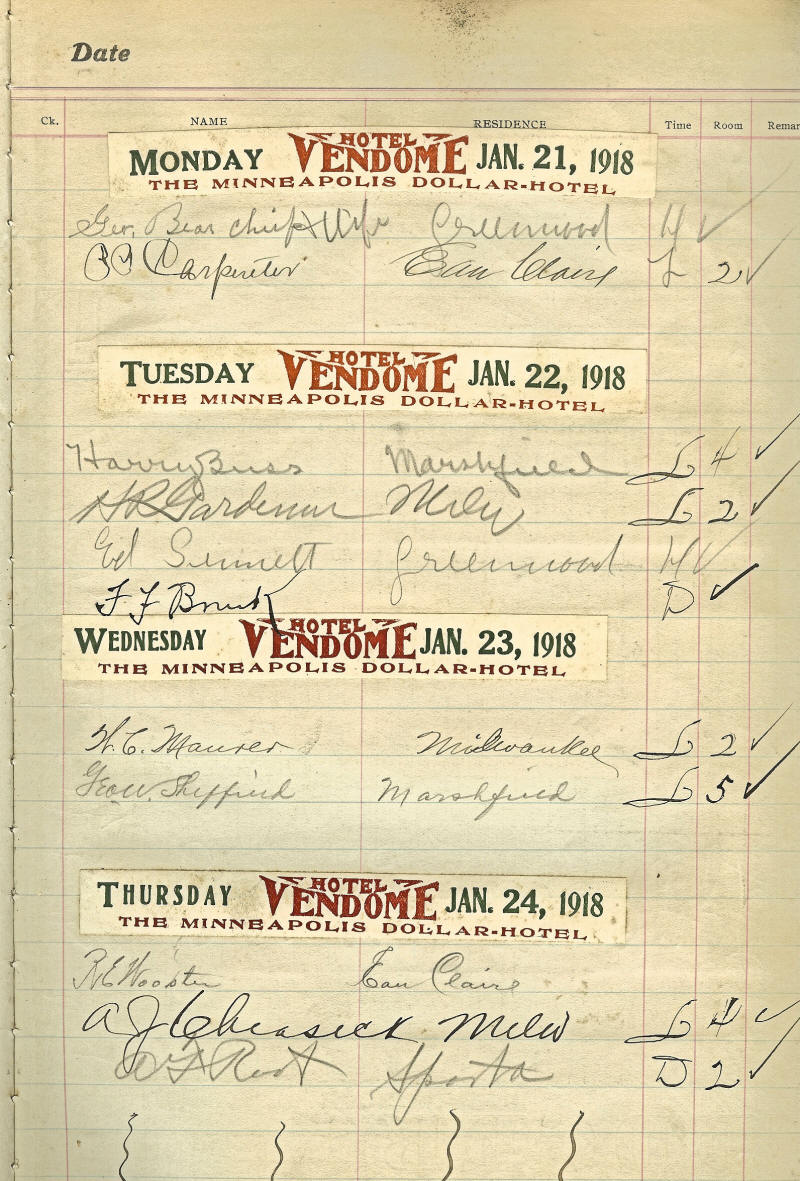 Date
Ck. NAME RESIDENCE Time Room Remar
MONDAY HOTEL VENDOME JAN. 21, 1918
THE MINNEAPOLIS DOLLAR-HOTEL
Geo. Bear chief & Wife Greenwood H ✓
Carpenter Eau Claire L 2 ✓
TUESDAY HOTEL VENDOME JAN. 22, 1918
THE MINNEAPOLIS DOLLAR-HOTEL
Harry Buss Marshfield L 4 ✓
H R Gardener Milw L 2 ✓
Ed Sennett Greenwood H ✓
F F D ✓
WEDNESDAY HOTEL VENDOME JAN. 23, 1918
THE MINNEAPOLIS DOLLAR-HOTEL
H. C. Maurer Milwaukee L 2 ✓
Geo W. Sheffield Marshfield L 5 ✓
THURSDAY HOTEL VENDOME JAN. 24, 1918
THE MINNEAPOLIS DOLLAR-HOTEL
R E Wooster Eau Claire
A J Milw L 4 ✓
Root Sparta D 2 ✓